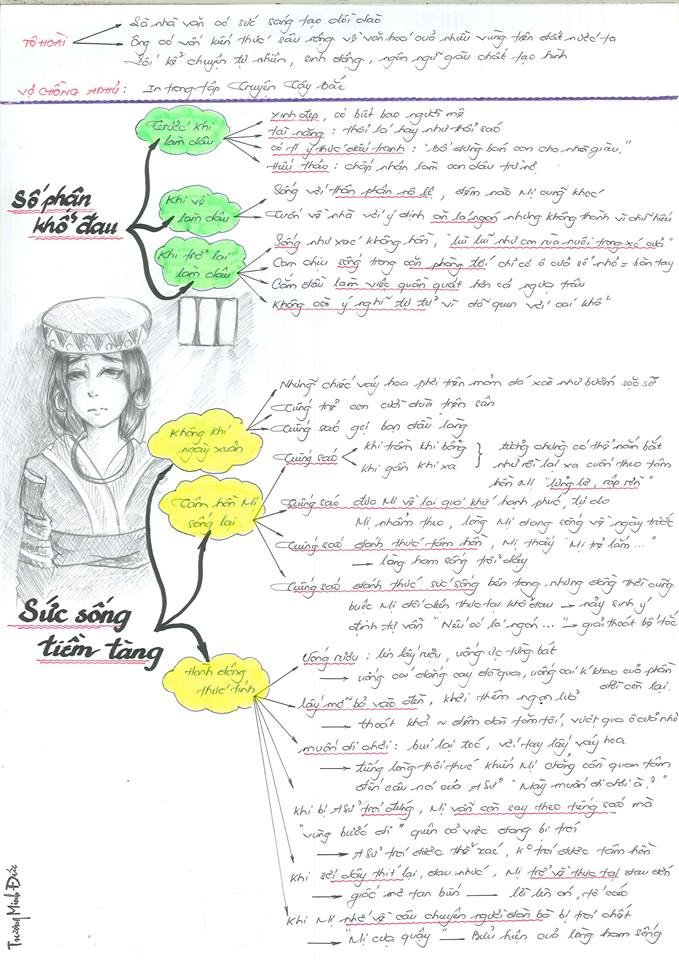 TÔ HOÀI
Là nhà văn có sức sáng tạo dồi dào
Ông có vốn kiến thức sâu rộng về văn hoá của nhiều vùng trên đất nước ta
Lối kể chuyện tự nhiên, sinh động, ngôn ngữ giàu chất tạo hình
VỢ CHỒNG A PHỦ: In trong tập Truyện Tây Bắc
Số phận
khổ đau
Trước khi
làm dâu
Xinh đẹp, có biết bao người mê
Tài năng: thổi lá hay như thổi sáo
có ý thức đấu tranh: "bố đừng bán con cho nhà giàu."
Hiếu thảo: chấp nhận làm con dâu trừ nợ
Khi về
làm dâu
Sống với thân phận nô lệ, đêm nào Mị cũng khóc
Trốn về nhà với ý định ăn lá ngón nhưng không thành vì chữ hiếu
Khi trở lại
làm dâu
Sống như xác không hồn, "lùi lũi như con rùa nuôi trong xó cửa"
Cam chịu sống trong căn phòng tối chỉ có ô cửa sổ nhỏ = bàn tay
Cắm đầu làm việc quần quật hơn cả ngựa trâu
Không còn ý nghĩ tự tử vì đã quen với cái khổ
Sức sống
tiềm tàng
Không khí
ngày xuân
Những chiếc váy hoa phơi trên mỏm đá xoè như bướm sặc sỡ
Tiếng trẻ con cười đùa trên sân
Tiếng sáo gọi bạn đầu làng
Tâm hồn Mị
sống lại
Tiếng sáo
khi trầm khi bổng
khi gần khi xa
tưởng chừng có thể nắm bắt
như rồi lại xa cuốn theo tâm
hồn Mị "lửng lơ, rập rờn"
Tiếng sáo đưa Mị về lại quá khứ hạnh phúc, tự do
Mị nhẩm theo, lòng Mị đang sống về ngày trước
Tiếng sáo đánh thức tâm hồn, Mị thấy "Mị trẻ lắm..."
lòng ham sống trỗi dậy
Tiếng sáo đánh thức sức sống bên trong nhưng đồng thời cũng
buộc Mị đối diện thực tại khổ đau → nảy sinh ý
định tự vẫn "Nếu có lá ngón..." → giải thoát bế tắc
Hành động
thức tỉnh
Uống rượu: lén lấy rượu, uống ực từng bát
uống cái đắng cay đã qua, uống cái khát khao của phần
đời còn lại.
lấy mỡ bỏ vào đèn, khơi thêm ngọn lửa
thoát khỏi ~ đêm dài tăm tối, vượt qua ô cửa nhỏ
muốn đi chơi: búi lại tóc, với tay lấy váy hoa
tiếng lòng thôi thúc khiến Mị chẳng còn quan tâm
đến câu nói của A Sử "Mày muốn đi chơi à?"
Khi bị A Sử trói đứng, Mị vẫn còn say theo tiếng sáo mà
"vùng bước đi" quên cả việc đang bị trói
A Sử trói được thể xác, ko trói được tâm hồn
Khi sợi dây thít lại, đau nhức, Mị trở về thực tại đau đớn
giấc mơ tan biến — lời lên án, tố cáo
Khi Mị nhớ về câu chuyện người đàn bà bị trói chết
"Mị cựa quậy" — Biểu hiện của lòng ham sống
Trương Minh Đức